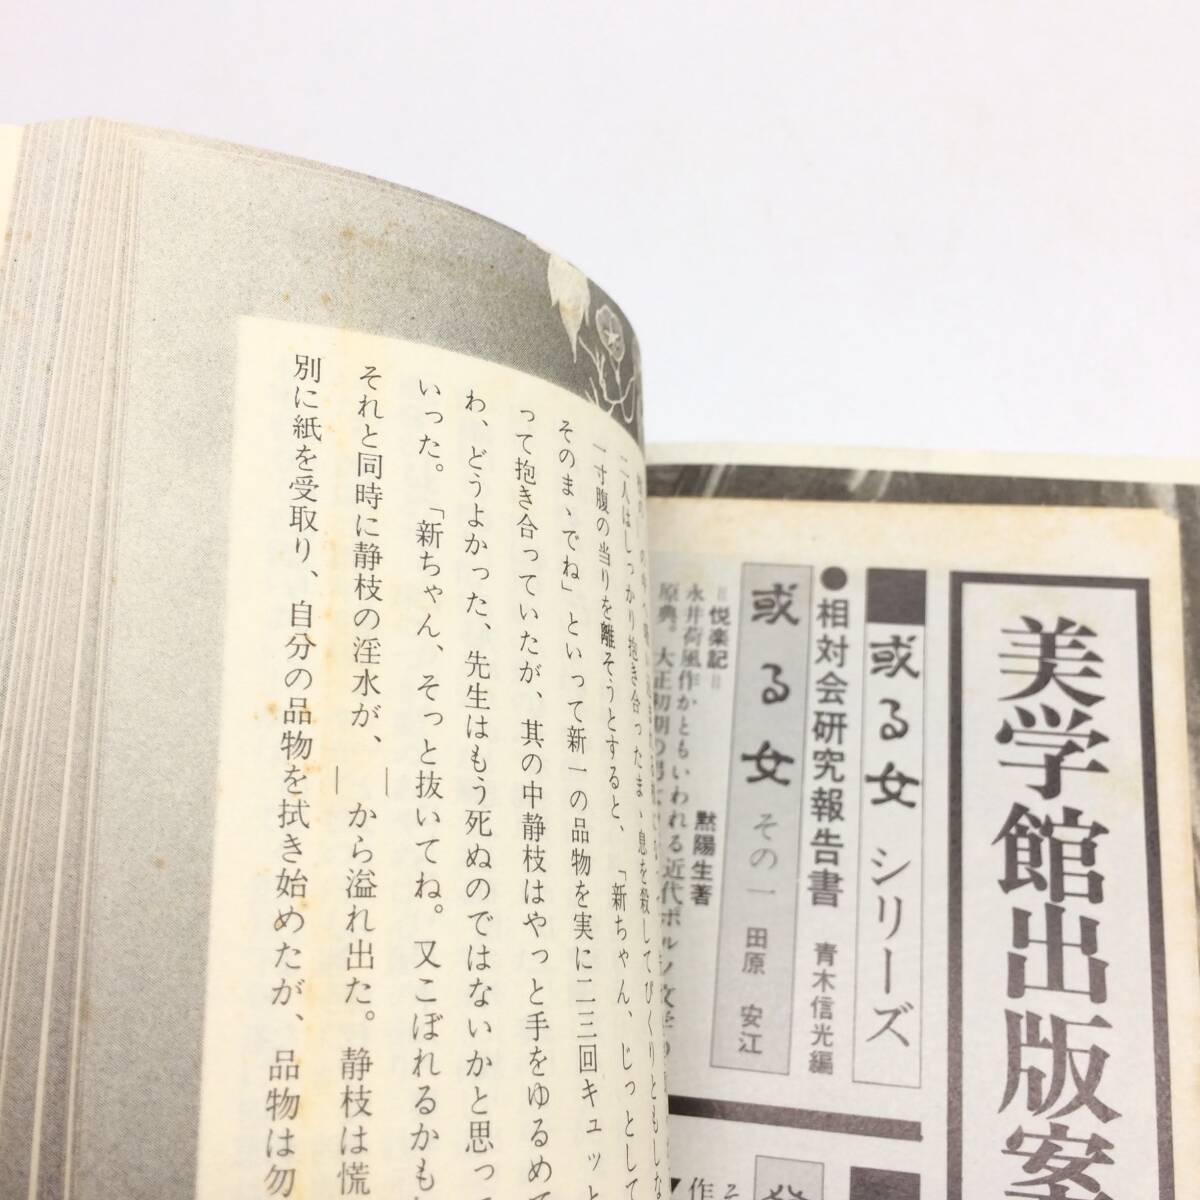 美学館出版案
或る女 シリーズ
●相対会研究報告書 青木信光編
或る女 その一 田原 安江
=悦楽記= 黙陽生著
永井荷風作かともいわれる近代ポルノ文学の
原典。大正初期の男
二人はしっかり抱き合ったまゝ息を殺してびくりともしな
一寸腹の当りを離そうとすると、「新ちゃん、じっとして
そのまゝでね」といって新一の品物を実に二三回キュッと
って抱き合っていたが、其の中静枝はやっと手をゆるめて
わ、どうよかった、先生はもう死ぬのではないかと思って
いった。「新ちゃん、そっと抜いてね。又こぼれるかも
それと同時に静枝の淫水が、――から溢れ出た。静枝は慌
別に紙を受取り、自分の品物を拭き始めたが、品物は勿